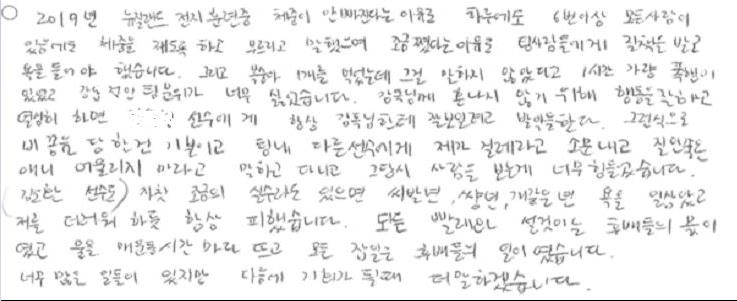 ○ 2019년 뉴질랜드 전지훈련중 체중이 안빠진다는 이유로 하루에도 6번이상 모든사람이
있는데도 체중을 재도록 하고 부르라고 말했으며 조금쪘다는이유로 팀사람들에게 질책을 받고
욕을 들어야 했습니다. 그리고 복숭아 1개를 먹었는데 그걸 말하지 않았다고 1시간 가량 폭행이
있었고 강압적인 팀분위기 너무 싫었습니다. 감독님께 혼나지 않기 위해 행동을 조심하고
열심히 하면 선수에게 항상 감독님한테 잘보일려고 발악들한다. 그런식으로
비꼼을 당한건 기본이고 팀내 다른선수에게 제가 걸레라고 소문내고 질안좋은
애니 어울리지 마라고 말하고 다니고 그당시 사람을 보는게 너무힘들었습니다.
선수는) 자칫 조금의 실수라도 있으면 씨발년, 쌍년, 개같을년 욕을 일삼았고
저를 더러워하듯 항상 피했습니다. 모든 빨래와 설겆이는 후배들의 몫이
였고 물을 매운동시간마다 뜨고 모든 잡일은 후배들의 일이였습니다.
너무 많은 일들이 있지만 다음에 기회가 될때 더말하겠습니다.